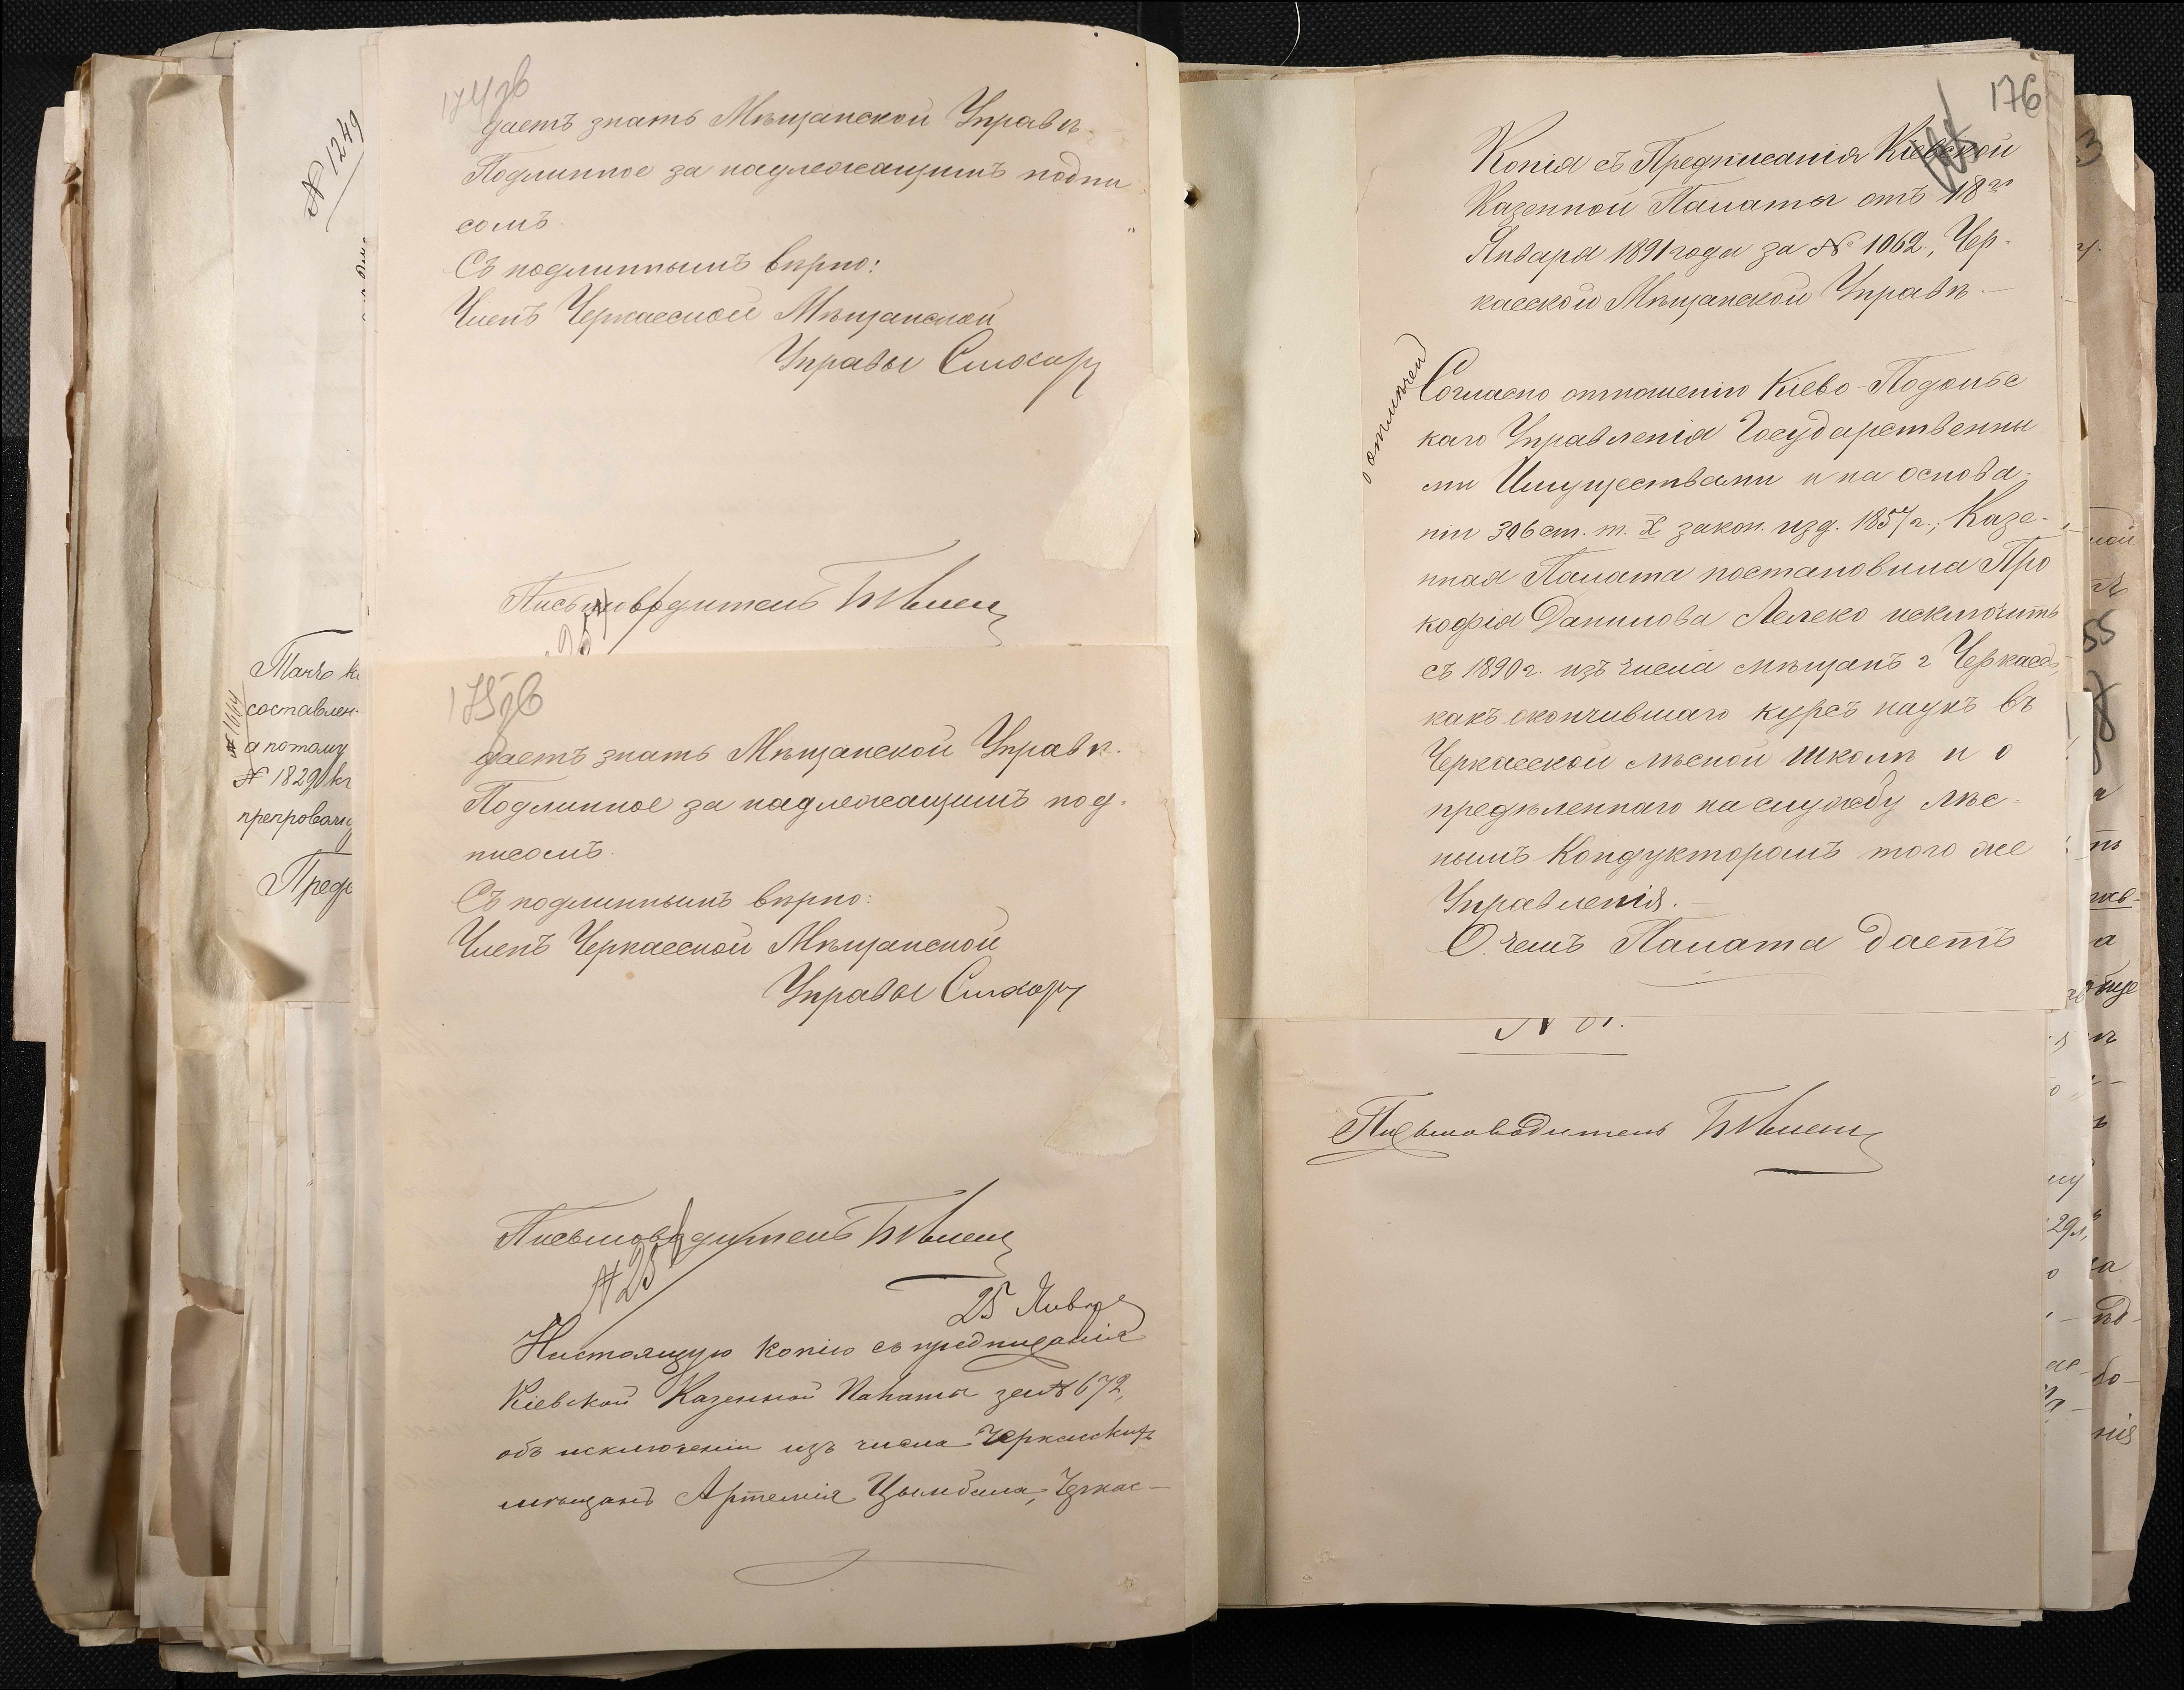 № 1249
Такъ к
составлен
а потому
№ 1829 кг
препровожд
Предс
№ 1614
174 об
даетъ знать Мѣщанской Управѣ.
Подлинное за надлежащимъ подпи
сомъ.
Съ подлиннымъ вѣрно:
Членъ Черкасской Мѣщанской
Управы
Письмоводитель
175 об
даетъ знать Мѣщанской Управѣ.
Подлинное за надлежащимъ под-
писомъ.
Съ подлиннымъ вѣрно:
Членъ Черкасской Мѣщанской
Управы
Письмоводитель
№ 25
25 Января
Настоящую копію съ предписанія
Кіевской Казенной Палаты за № 672,
объ исключеніи изъ числа Черкасскихъ
мѣщанъ Артемія Цымбала, Черкас-
176
Копія съ Предписанія Кіевской
Казенной Палаты отъ 18го
Января 1891 года за № 1062, Чер-
касской Мѣщанской Управѣ –
Согласно отношенію Кіево-Подольс
каго Управленія Государственны
ми Имуществами и на основа-
ніи 306 ст. т. X закон. изд. 1857 г., Казе-
нная Палата постановила Про
кофія Данилова Лелеко исключить
съ 1890 г. изъ числа мѣщанъ г Черкассъ,
какъ окончившаго курсъ наукъ въ
Черкасской лѣсной школѣ и о
предѣленнаго на службу лѣс-
нымъ Кондукторомъ того же
Управленія. –
О чемъ Палата даетъ
Письмоводитель